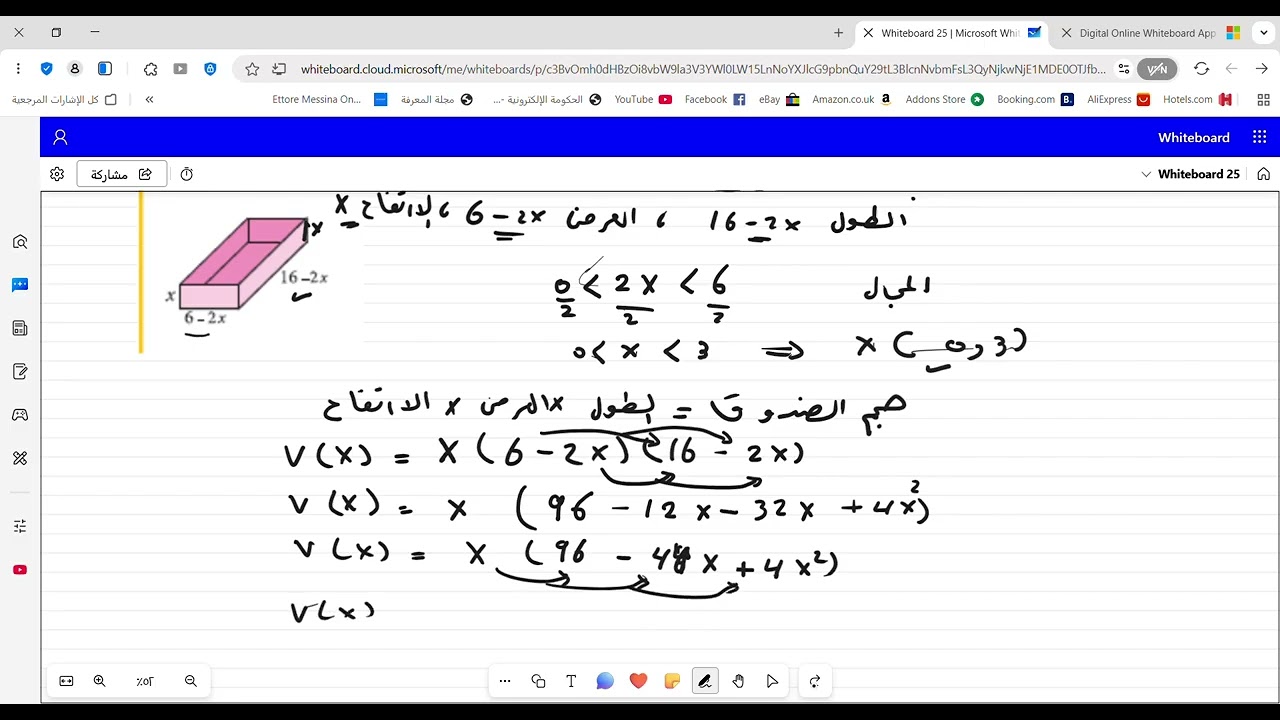 Whiteboard 25 | Microsoft Whi
Digital Online Whiteboard App
whiteboard.cloud.microsoft/me/whiteboards/p/
VPN
كل الإشارات المرجعية
Ettore Messina On...
مجلة المعرفة
الحكومة الإلكترونية -...
YouTube
Facebook
eBay
Amazon.co.uk
Addons Store
Booking.com
AliExpress
Hotels.com
Whiteboard
مشاركة
Whiteboard 25
الطول 16 - 2x ، العرض 6 - 2x ، الارتفاع x
x
16 - 2x
x
6 - 2x
المجال
0/2 < 2x/2 < 6/2
0 < x < 3 ⇒ x (0, 3)
حجم الصندوق = الطول × العرض × الارتفاع
V(x) = x (6 - 2x) (16 - 2x)
V(x) = x (96 - 12x - 32x + 4x²)
V(x) = x (96 - 44x + 4x²)
V(x)
٥٢٪